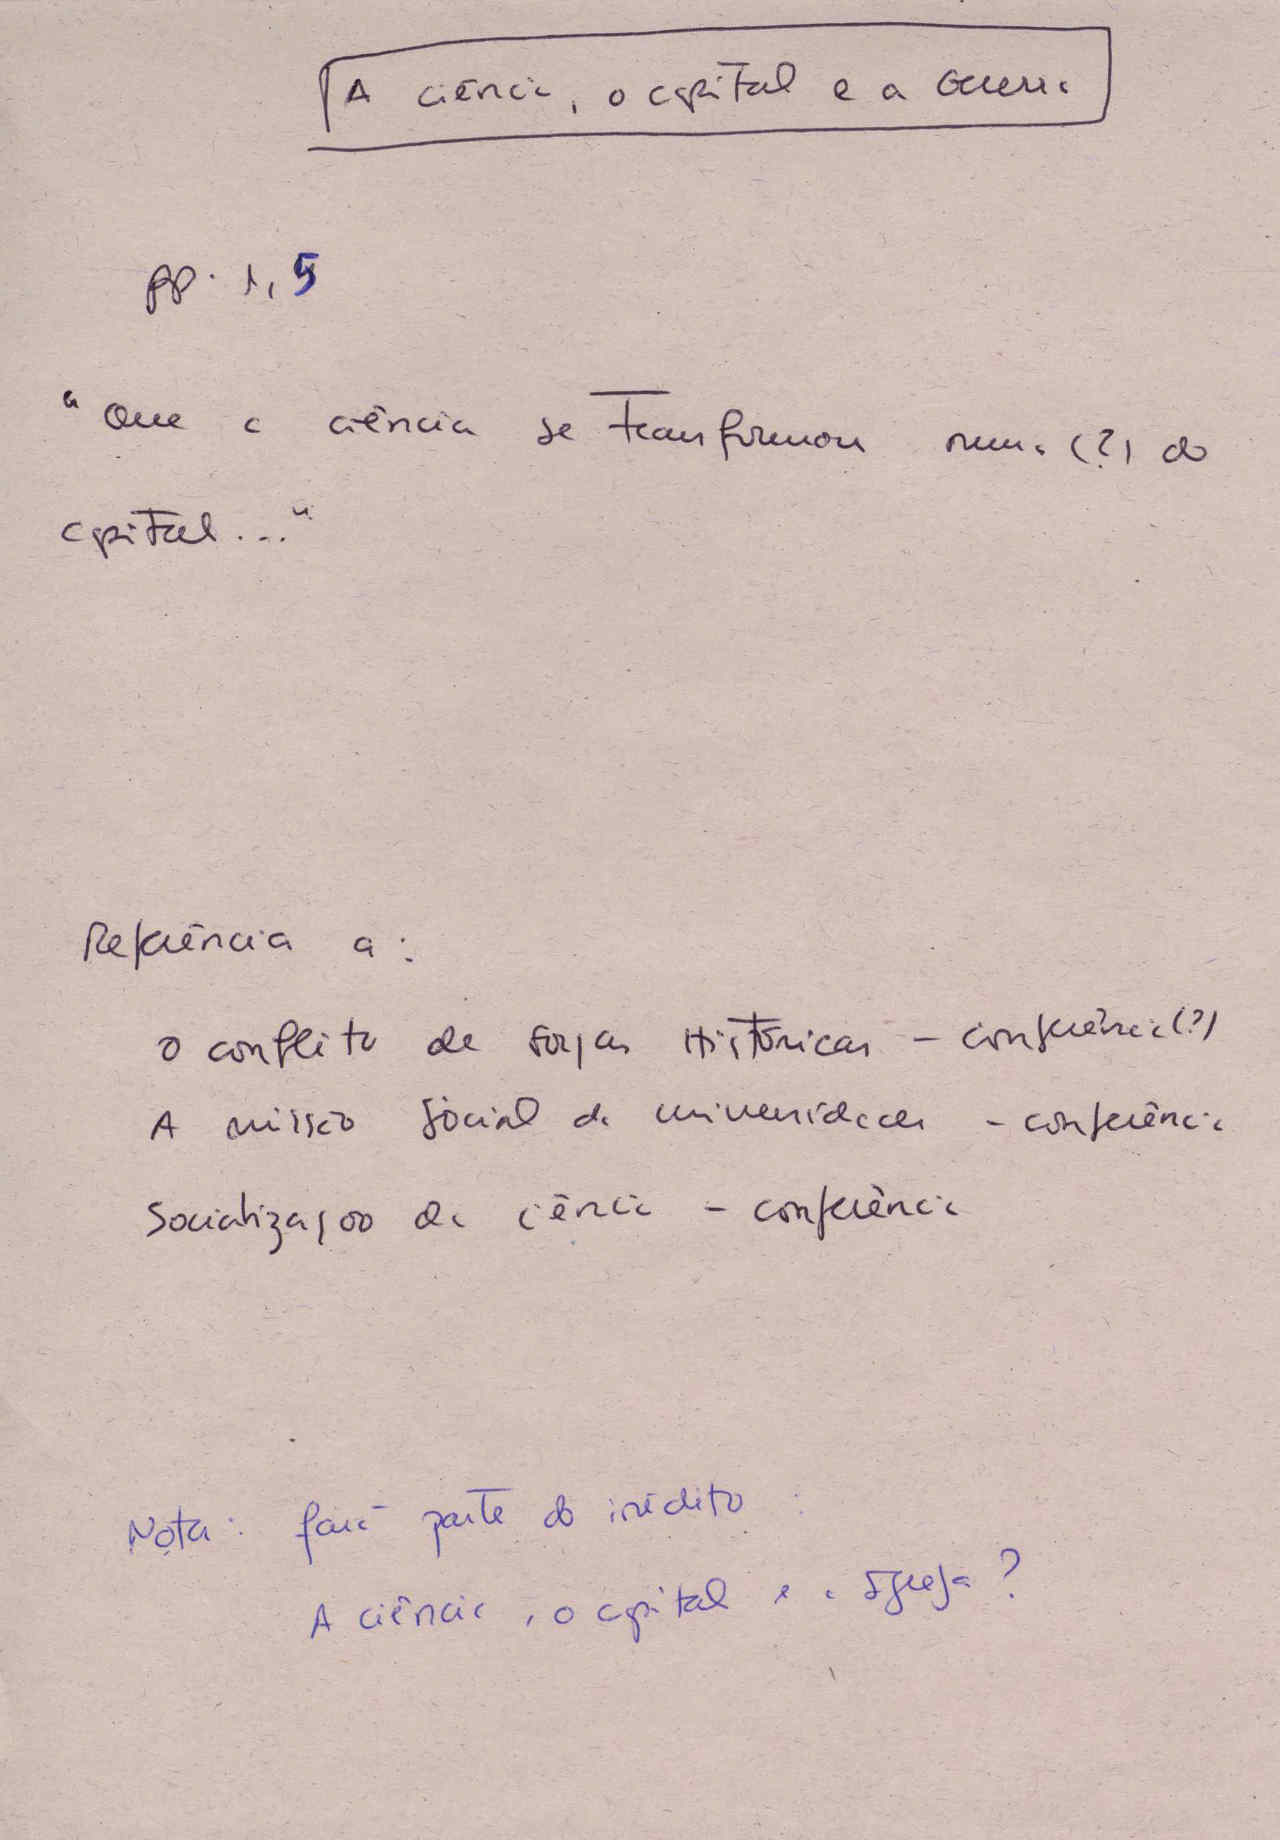 A ciência, o capital e a Guerra
pp. 1, 5
"Que a ciência se transformou numa (?) do
capital..."
Referência a:
O conflito de forças Históricas - conferência (?)
A missão social da universidades - conferência
Socialização da ciência - conferência
Nota: fará parte do inédito :
A ciência, o capital e a Igreja?